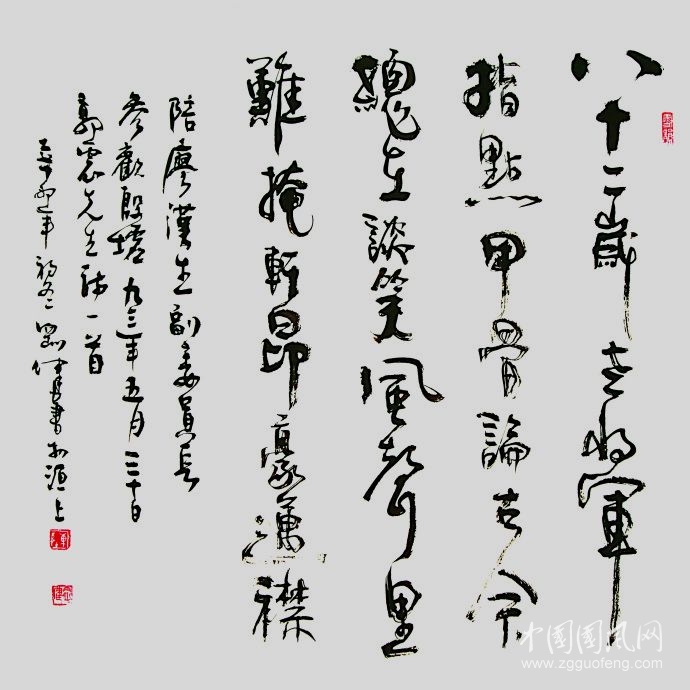 八十二歲老將軍
指點甲骨論古今
總在談笑風聲里
難掩軒昂豪邁襟
陪廖漢生副委員長
參觀殷墟九三年五月三十日
郭震先生詩一首
年初冬劉健書於洹上
中国国风网
www.zgguofeng.com